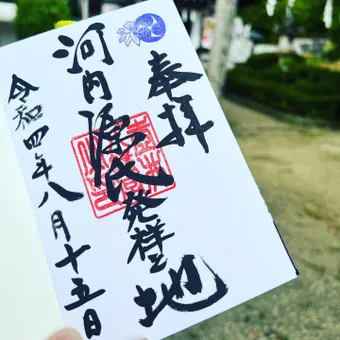 奉拝
河内源氏発祥之地
令和四年八月十五日